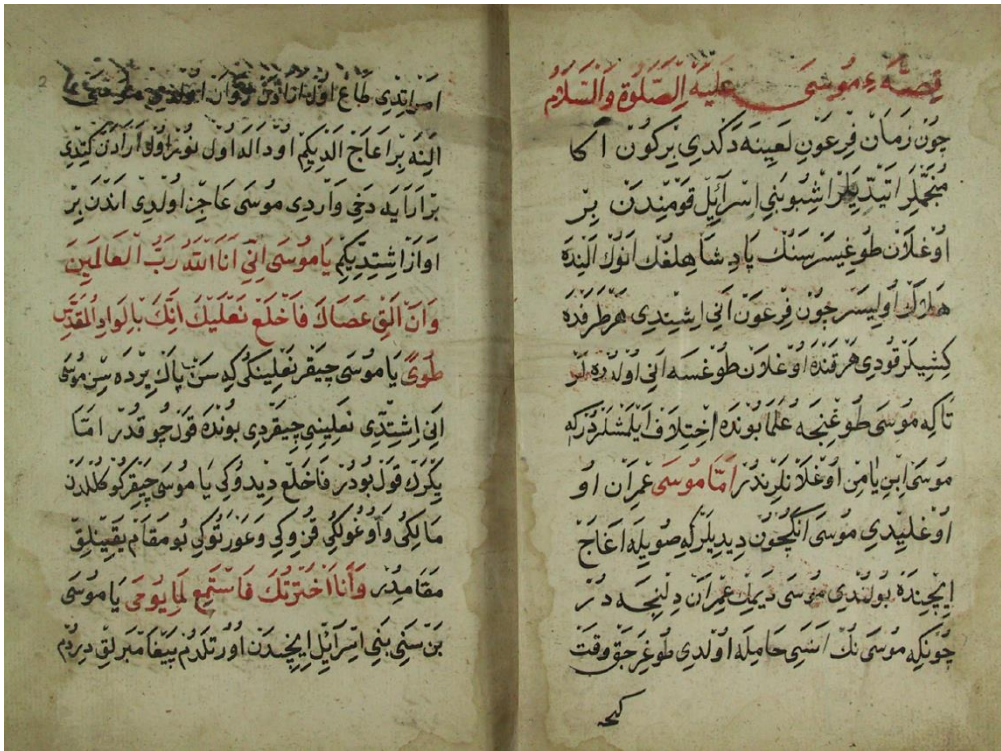 قصّهء موسى عليه الصلوة والسلام
چون زمان فرعون لعينه دكدي بركون اكا
منجّملر ايتديلر اشبو بني اسرائيل قومندن بر
اوغلان طوغيسر سنك پادشاهلغك انوك النده
هلاك اوليسر چون فرعون اني اشيتدي هر طرفده
كشيلر قودي هر قنده اوغلان طوغسه اني اولدرهلر
تا كه موسى طوغنجه علما بونده اختلاف ايلمشلردركه
موسى ابن يامن اوغلانلرندر امّا موسى عمران او
اوغليدي موسى انكچون ديديلركه صويله اغاج
ايچنده بولندي موسى ديمك عمران دلنجه در
چونكه موسى نك اناسى حامله اولدي طوغرجق وقت
كجه
امر ايتدي طاغ اول ارادن روان اولدي موسى
النه بر اعاج الديكم اوداله اول نور اول ارادن كتدي
بر ارايه دخي واردي موسى عاجز اولدي اندن بر
اواز اشتديكم يا موسى انّي انا الله ربّ العالمين
وان الق عصاك فاخلع نعليك انّك بالواد المقدّس
طوى يا موسى چيقر نعلينكي كه سن پاك يرده سن موسى
اني اشتدي نعليني چيقردي بونده قول چوقدر امّا
يكرك قول بودر فاخلع ديدوكي يا موسى چيقر كوكلكدن
مالكي و اوغولكي قزوكي و عورتوكي بو مقام يقينلق
مقامدر وانا اخترتك فاستمع لما يوحى يا موسى
بن سني بني اسرائيل ايچندن اورتلدم پيغامبرلق ديردم